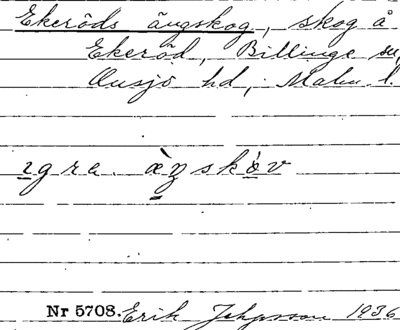 Ekeröds ängskog, skog å
Ekeröd, Billinge sn,
Onsjö hd, Malm. l.
ɪgra. æ̀ŋskòv
Nr 5708. Erik 1936